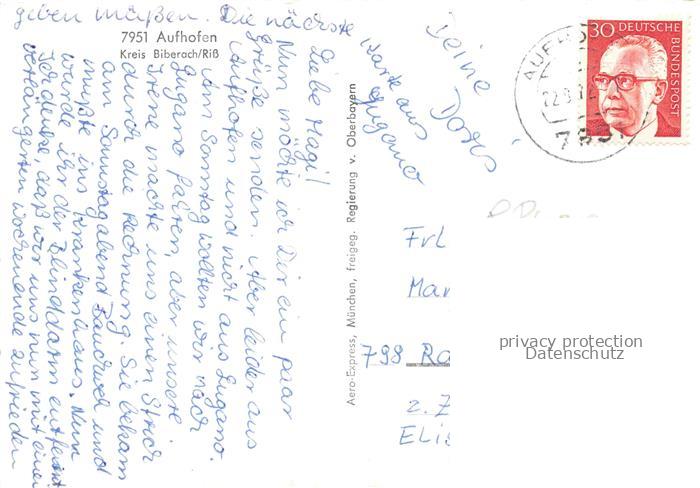 7951 Aufhofen
Kreis Biberach/Riß
Liebe Magi!
Nun möchte ich Dir ein paar
Grüße senden. Aber leider aus
Aufhofen und nicht aus Lugano.
Am Samstag wollten wir nach
Lugano fahren, aber unsere
Irene machte uns einen Strich
durch die Rechnung. Sie bekam
am Sonnstagabend Bauchweh und
mußte ins Krankenhaus. Nun
wurde ihr der Blinddarm entfernt
Ich denke, daß wir uns nun mit einem
verlängerten Wochenende zufrieden
geben müßen. Die nächste
Karte aus
Lugano
Deine
Doris
Aero-Express, München, freigeg. Regierung v. Oberbayern
30 DEUTSCHE BUNDESPOST
AUFHO
795
Frl
Mar
798 Ra
z. Z
Elis
privacy protection
Datenschutz